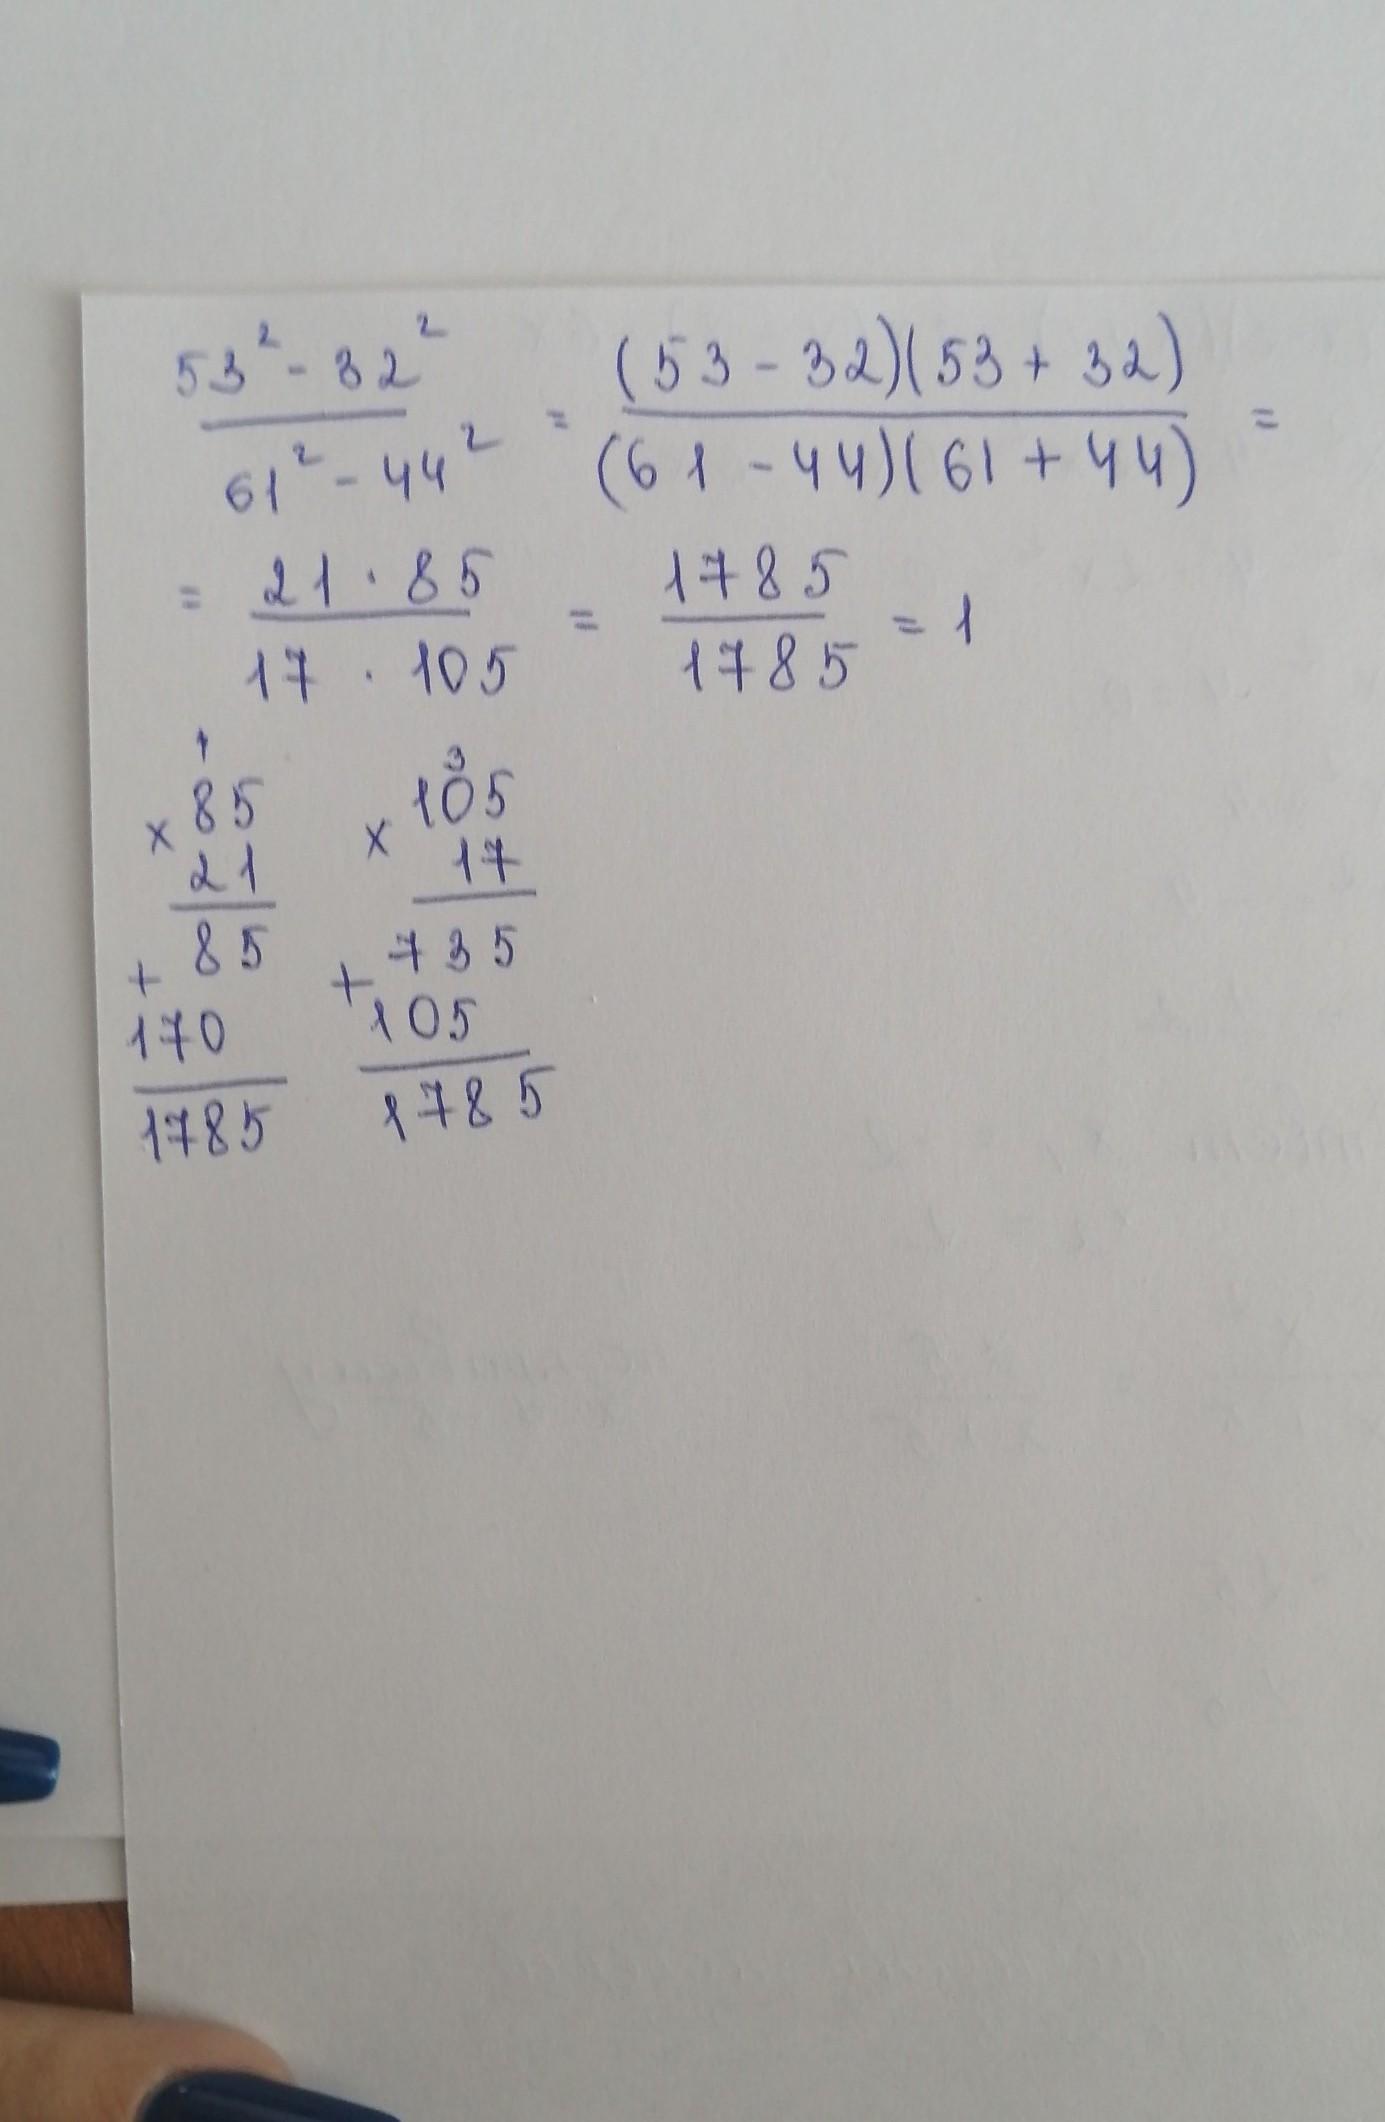 53² - 32² / 61² - 44² = (53 - 32)(53 + 32) / (61 - 44)(61 + 44) =
= 21 · 85 / 17 · 105 = 1785 / 1785 = 1
1 3
85 105
× 21 × 17
85 735
+ +
170 105
1785 1785